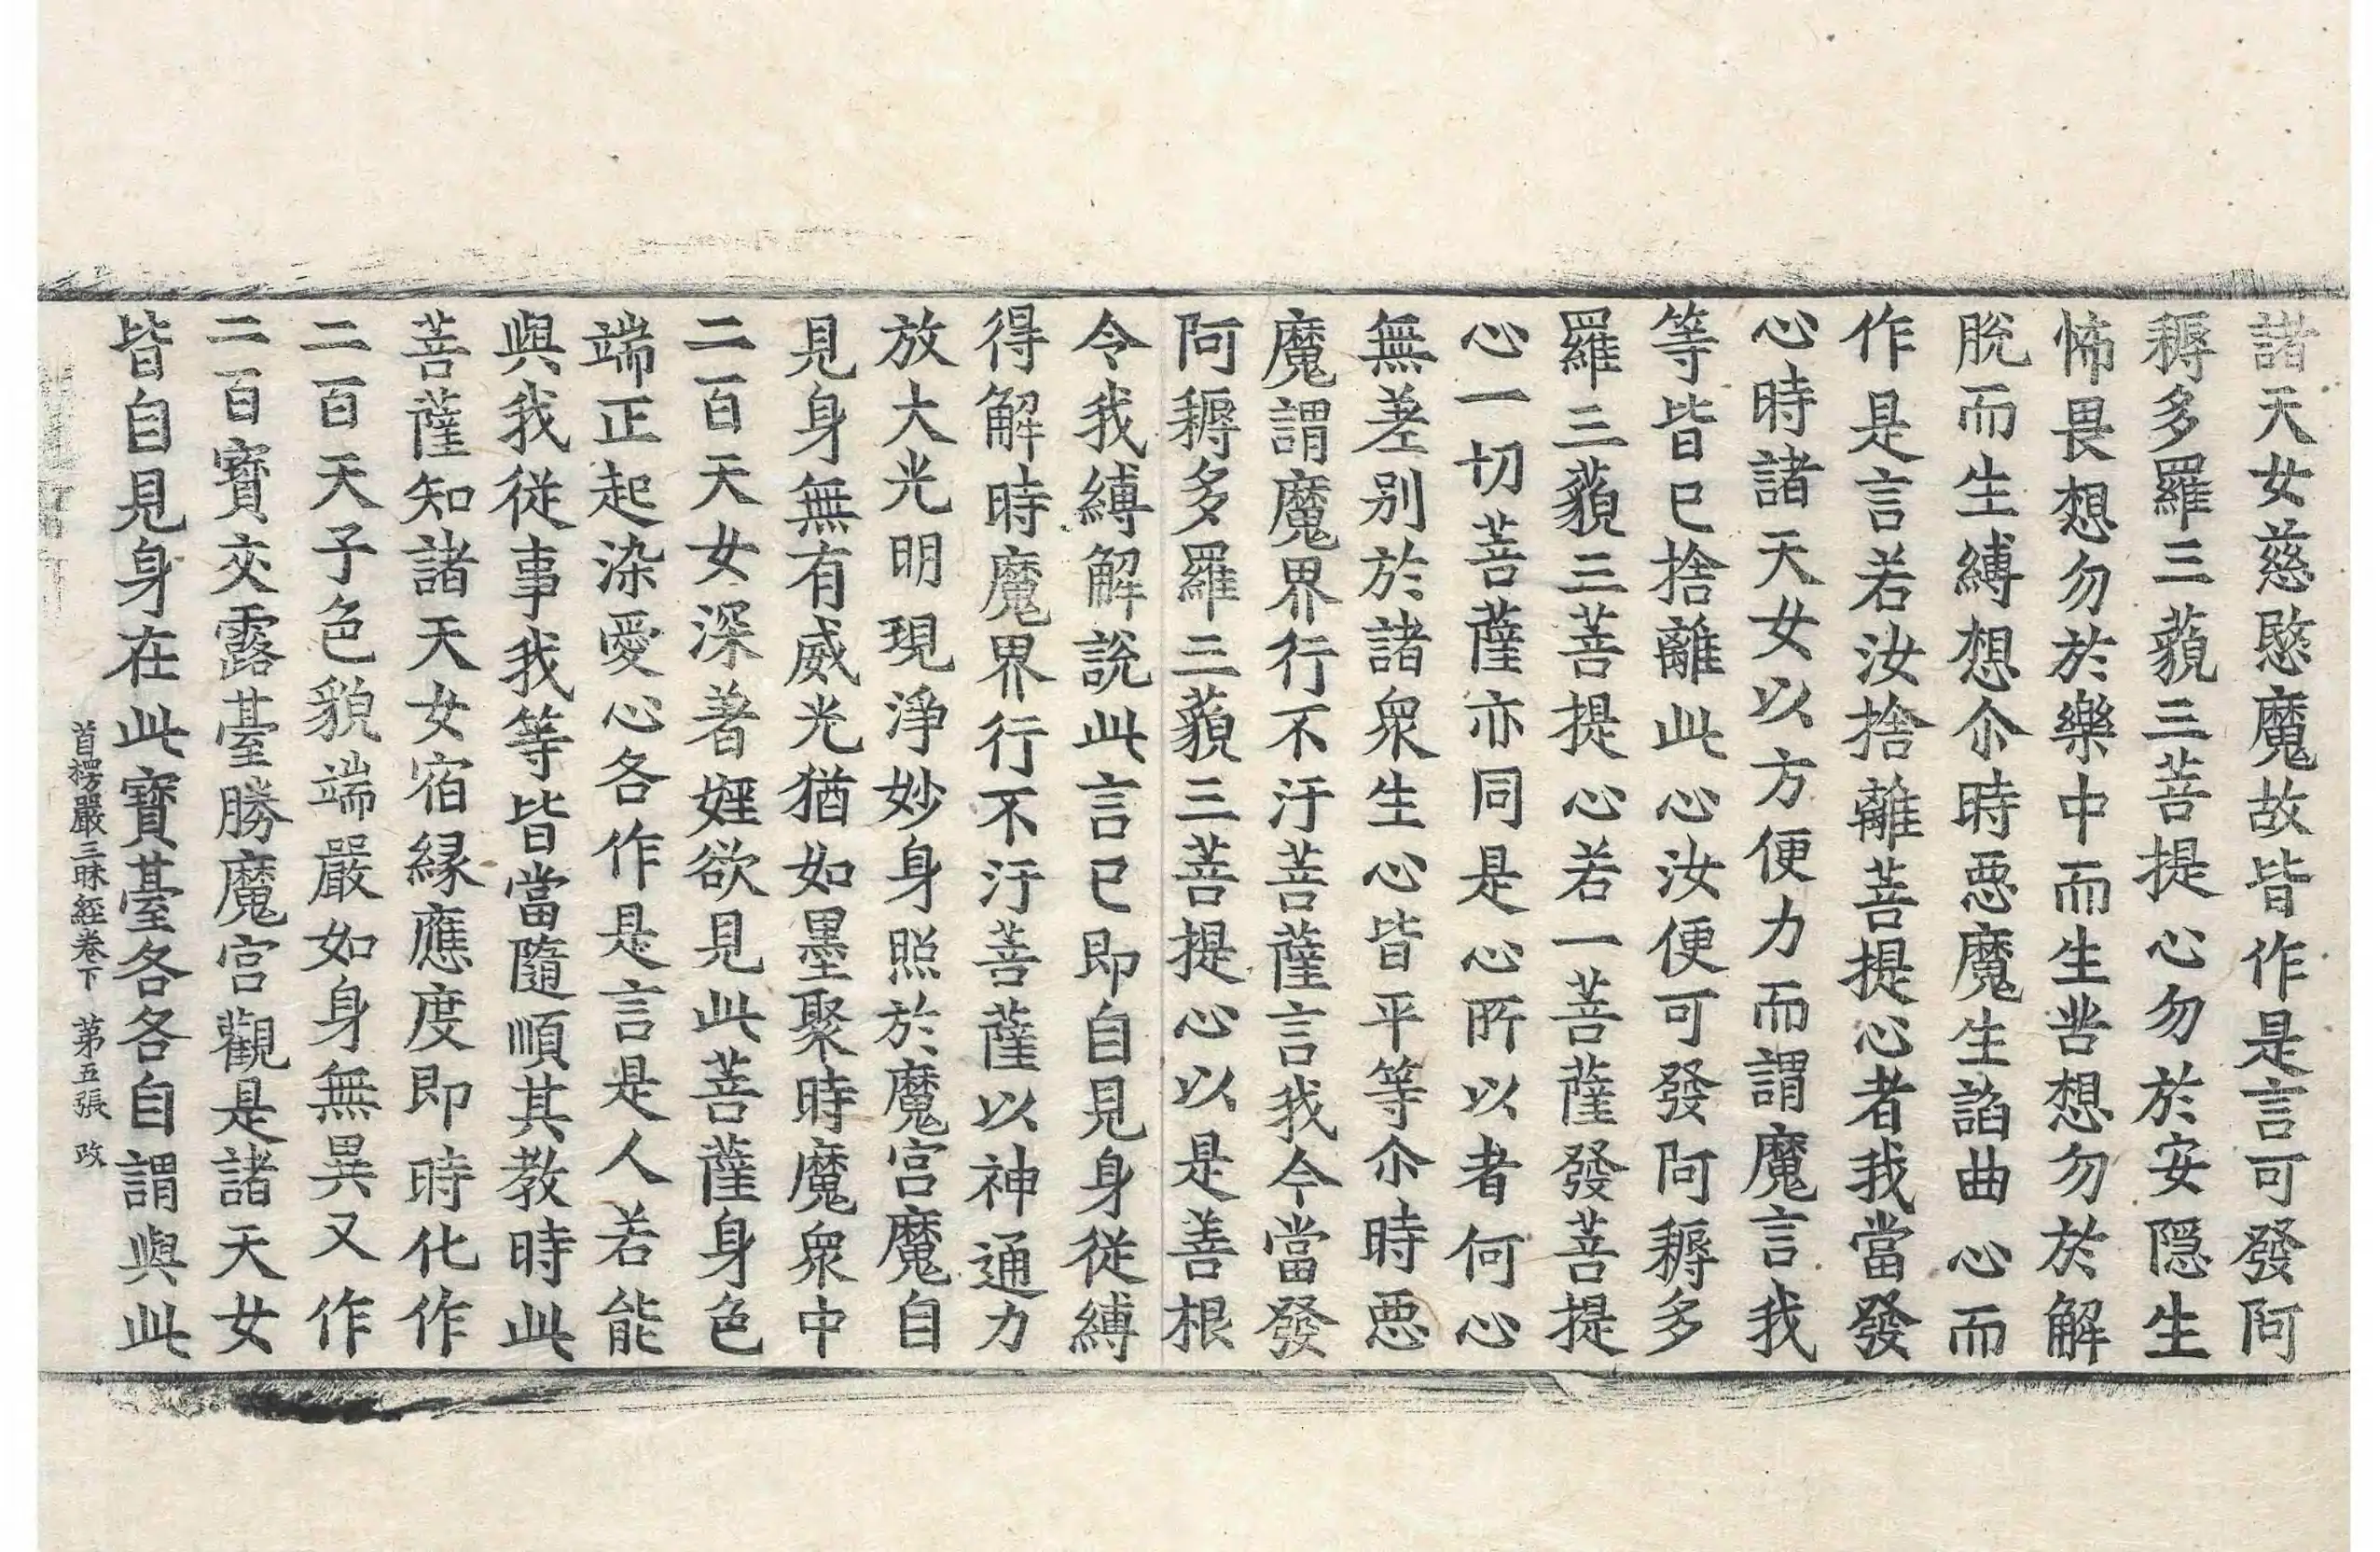 諸天女慈愍魔故皆作是言可發阿
耨多羅三藐三菩提心勿於安隱生
怖畏想勿於樂中而生苦想勿於解
脫而生縛想尒時惡魔生諂曲心而
作是言若汝捨離菩提心者我當發
心時諸天女以方便力而謂魔言我
等皆已捨離此心汝便可發阿耨多
羅三藐三菩提心若一菩薩發菩提
心一切菩薩亦同是心所以者何心
無差別於諸衆生心皆平等尒時惡
魔謂魔界行不汙菩薩言我今當發
阿耨多羅三藐三菩提心以是善根
令我縛解說此言已即自見身從縛
得解時魔界行不汙菩薩以神通力
放大光明現淨妙身照於魔宮魔自
見身無有威光猶如墨聚時魔衆中
二百天女深著婬欲見此菩薩身色
端正起染愛心各作是言是人若能
與我從事我等皆當隨順其教時此
菩薩知諸天女宿緣應度即時化作
二百天子色貌端嚴如身無異又作
二百寶交露臺勝魔宮觀是諸天女
皆自見身在此寶臺各各自謂與此
首楞嚴三昧經卷下 第五張 改